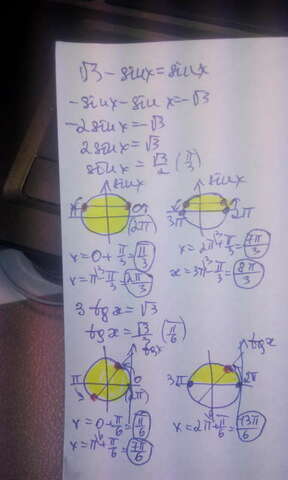 √3 - sin x = sin x
- sin x - sin x = -√3
-2 sin x = -√3
2 sin x = √3
sin x = √3/2 (π/3)
sin x
sin x
π
0
(2π)
3π
2π
x = 0 + π/3 = π/3
x = π - π/3 = 2π/3
x = 2π + π/3 = 7π/3
x = 3π - π/3 = 8π/3
3 tg x = √3
tg x = √3/3 (π/6)
tg x
tg x
π
0
(2π)
3π
2π
x = 0 + π/6 = π/6
x = π + π/6 = 7π/6
x = 2π + π/6 = 13π/6